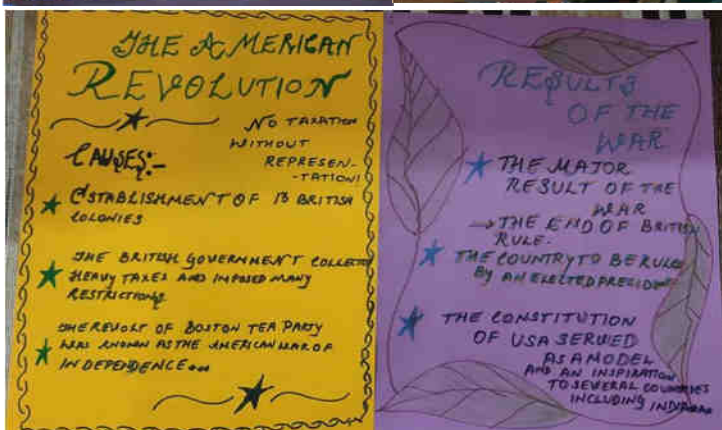 THE AMERICAN
REVOLUTION
NO TAXATION
WITHOUT
REPRESEN-
-TATION!
CAUSES:-
ESTABLISHMENT OF 13 BRITISH
COLONIES
THE BRITISH GOVERNMENT COLLECTED
HEAVY TAXES AND IMPOSED MANY
RESTRICTIONS.
THE REVOLT OF BOSTON TEA PARTY
WAS KNOWN AS THE AMERICAN WAR OF
INDEPENDENCE...
RESULTS
OF THE
WAR
THE MAJOR
RESULT OF THE
WAR
→ THE END OF BRITISH
RULE.
THE COUNTRY TO BE RULED
BY AN ELECTED PRESIDENT
THE CONSTITUTION
OF USA SERVED
AS A MODEL
AND AN INSPIRATION
TO SEVERAL COUNTRIES
INCLUDING